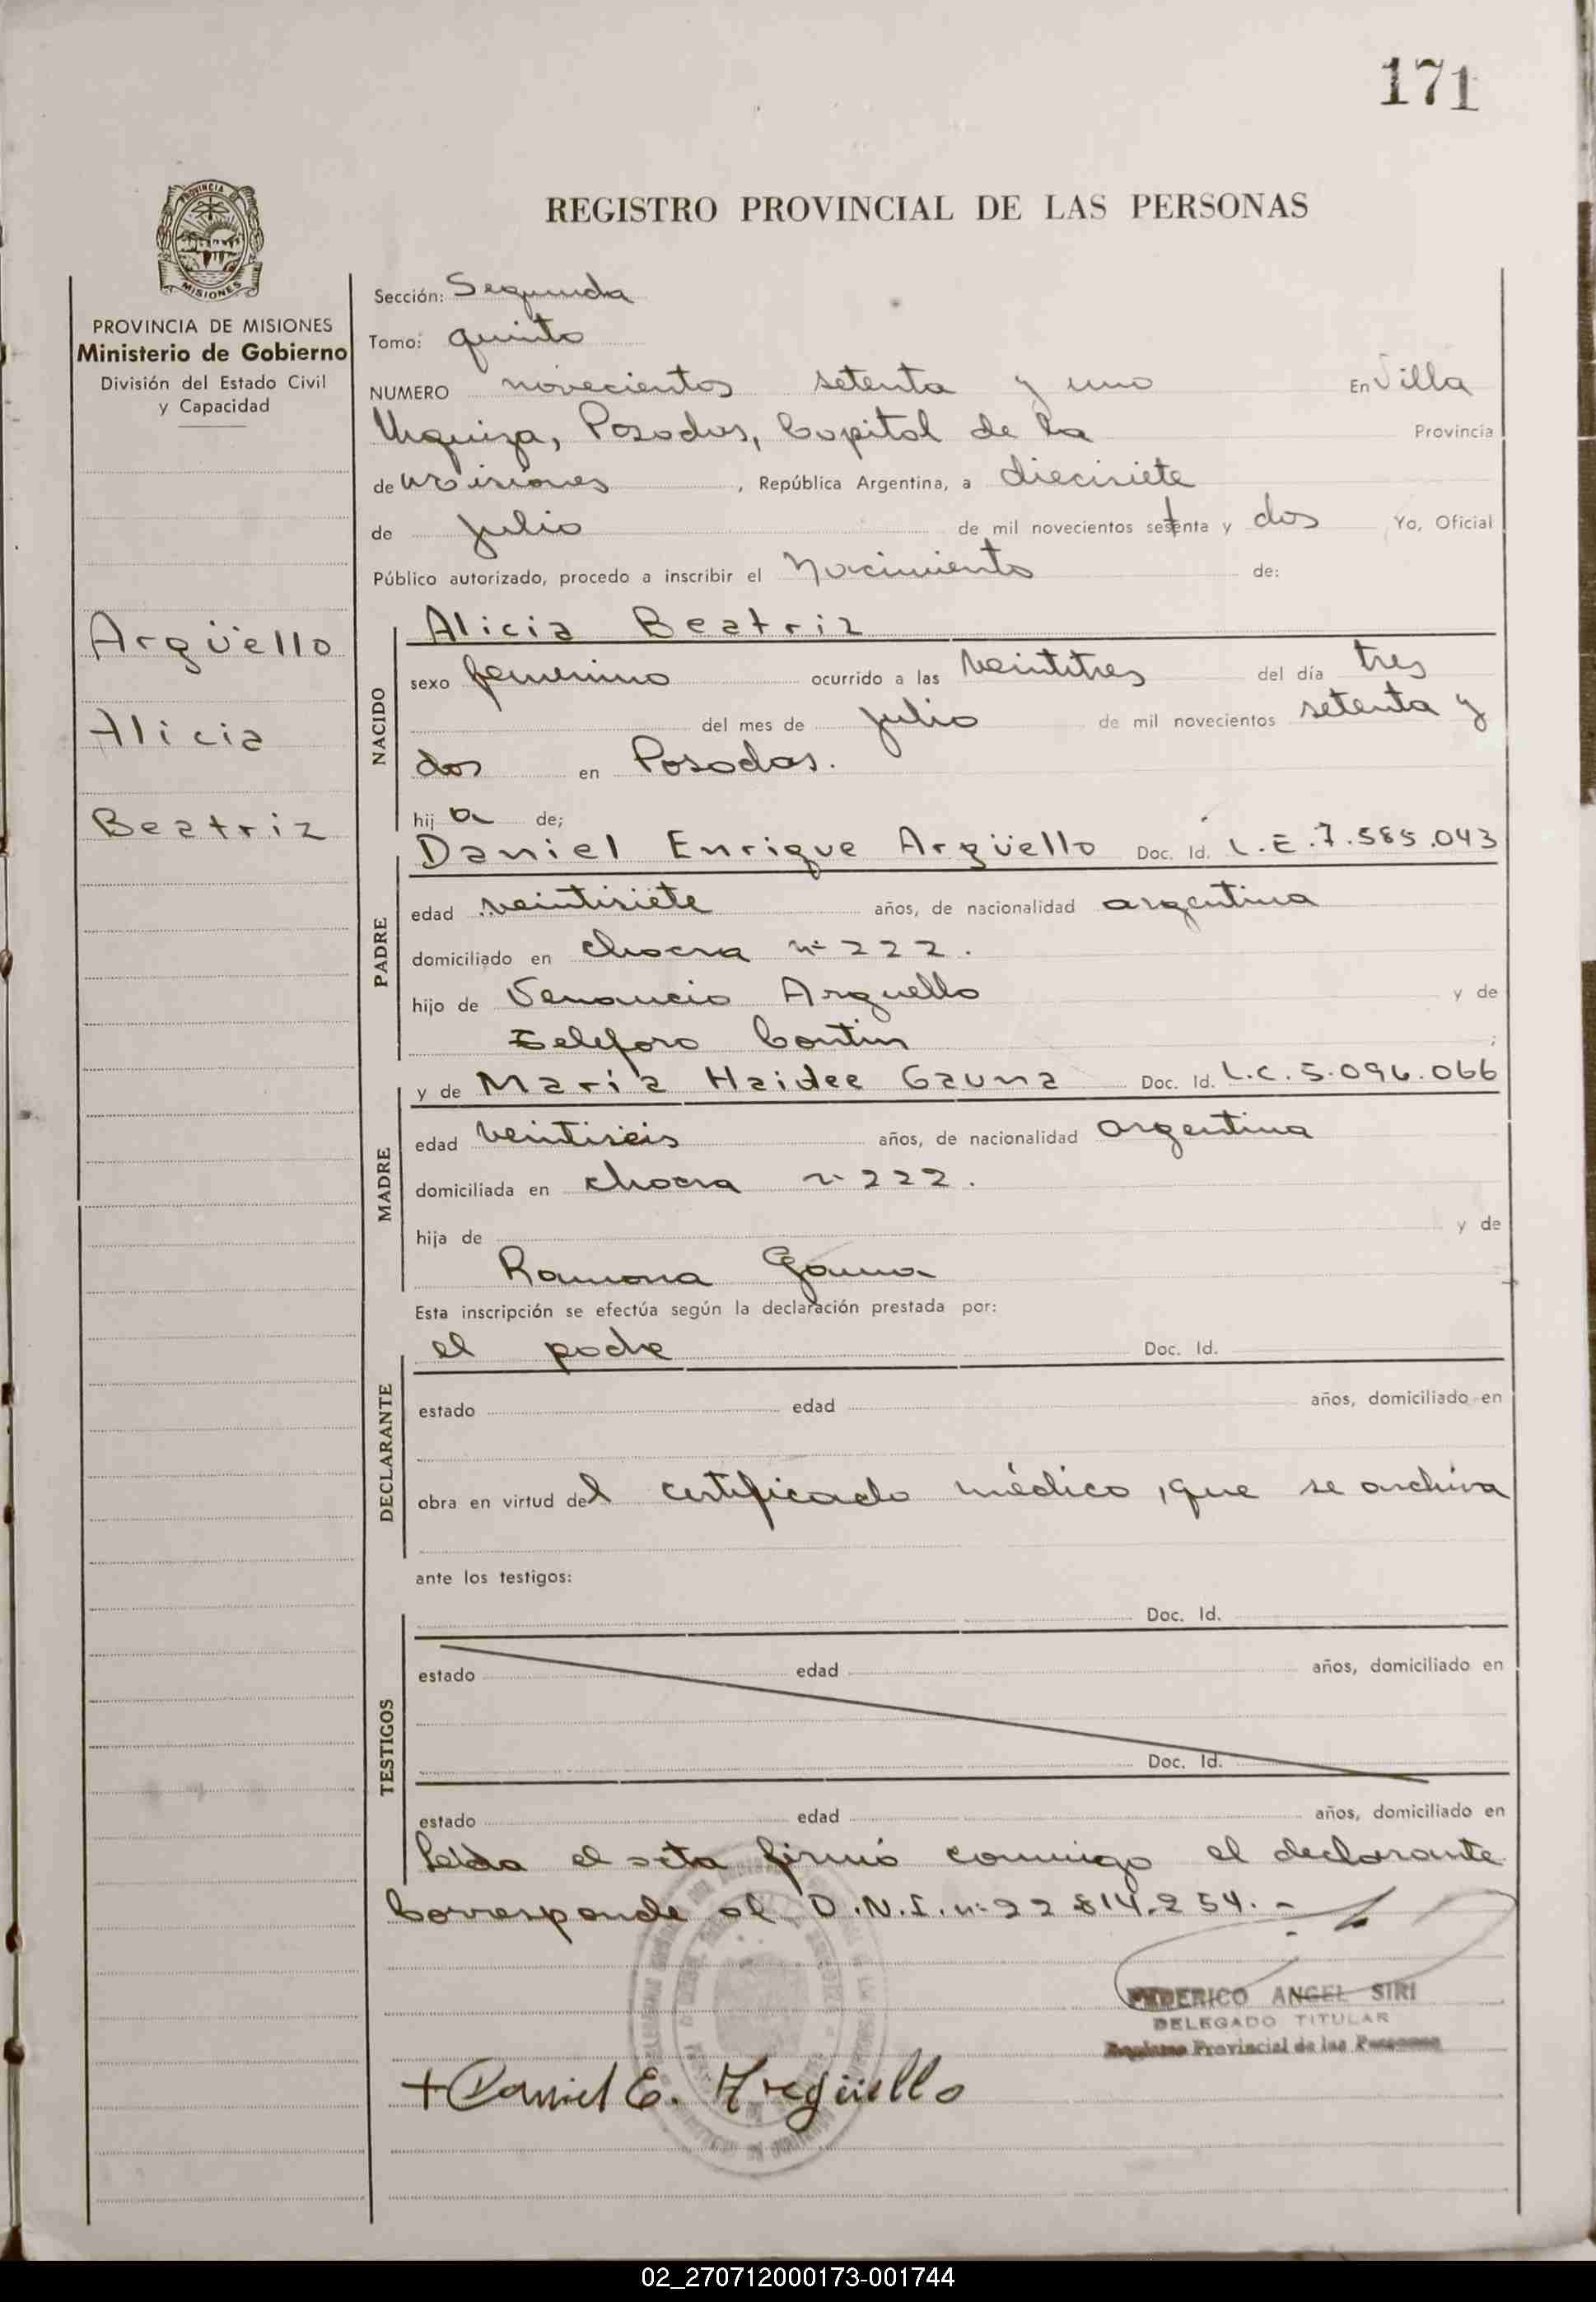 171
PROVINCIA
MISIONES
REGISTRO PROVINCIAL DE LAS PERSONAS
PROVINCIA DE MISIONES
Ministerio de Gobierno
División del Estado Civil
y Capacidad
Argüello
Alicia
Beatriz
Sección: Segunda
Tomo: quinto
NUMERO novecientos setenta y uno En Villa
Urquiza, Posadas, Capital de la Provincia
de Misiones, República Argentina, a diecisiete
de julio de mil novecientos setenta y dos Yo, Oficial
Público autorizado, procedo a inscribir el Nacimiento de:
NACIDO
Alicia Beatriz
sexo femenino ocurrido a las veintitres del día tres
del mes de julio de mil novecientos setenta y
dos en Posadas.
hija de;
PADRE
Daniel Enrique Argüello Doc. Id. L.E.7.585.043
edad veintisiete años, de nacionalidad argentina
domiciliado en chacra nº 222.
hijo de Venancio Arguello y de
Telefora ;
MADRE
y de María Haidee Gauna Doc. Id. L.C.5.096.066
edad veintiseis años, de nacionalidad argentina
domiciliada en chacra nº 222.
hija de y de
Ramona Gauna
Esta inscripción se efectúa según la declaración prestada por:
DECLARANTE
el padre Doc. Id.
estado edad años, domiciliado en
obra en virtud del certificado médico, que se archiva
ante los testigos:
TESTIGOS
Doc. Id.
estado edad años, domiciliado en
Doc. Id.
estado edad años, domiciliado en
Leida el acta firmó conmigo el declarante
Corresponde al D.N.I. nº 22 814.254.-
FEDERICO ANGEL SIRI
DELEGADO TITULAR
Registro Provincial de las Personas
+Daniel E. Argüello
02_270712000173-001744